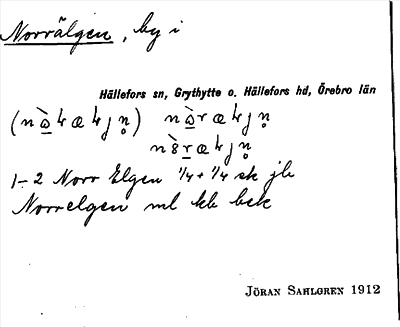 Norrälgen, by i
Hällefors sn, Grythytte o. Hällefors hd, Örebro län
1-2 Norr Elgen 1/4+1/4 sk jb
Norrelgen ml kb bek
JÖRAN SAHLGREN 1912